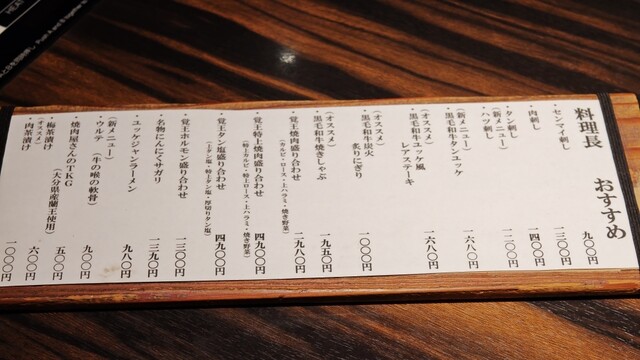 料理長 おすすめ
・センマイ刺し 九〇〇円
・肉刺し 一三〇〇円
・タン刺し 一四〇〇円
(新メニュー)
・ハツ刺し 一二〇〇円
(新メニュー)
・黒毛和牛タンユッケ 一六八〇円
(オススメ)
・黒毛和牛ユッケ風
レアステーキ 一六八〇円
(オススメ)
・黒毛和牛炭火
炙りにぎり 一〇〇〇円
(オススメ)
・黒毛和牛焼きしゃぶ 一九五〇円
・覚王焼肉盛り合わせ 二九八〇円
(カルビ・ロース・上ハラミ・焼き野菜)
・覚王特上焼肉盛り合わせ 四九〇〇円
(特上カルビ・特上ロース・上ハラミ・焼き野菜)
・覚王タン塩盛り合わせ 四九〇〇円
(上タン塩・特上タン塩・厚切りタン塩)
・覚王ホルモン盛り合わせ 一三〇〇円
・名物にんにくサガリ 一三九〇円
・ユッケジャンラーメン 九八〇円
(新メニュー)
・ウルテ (牛の喉の軟骨) 九〇〇円
・焼肉屋さんのTKG
(大分県産蘭王使用) 五〇〇円
・梅茶漬け 六〇〇円
(オススメ)
・肉茶漬け 一〇〇〇円